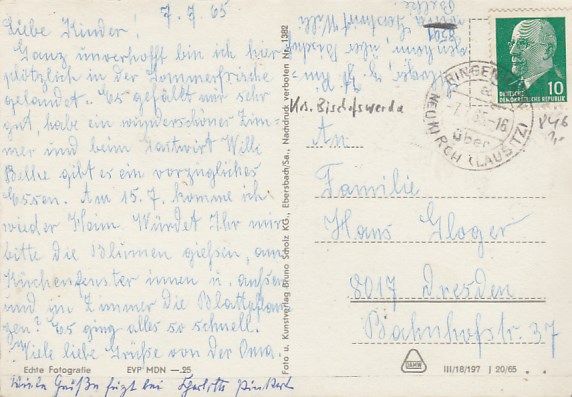 7. 7. 65
Liebe Kinder!
Ganz unverhofft bin ich hier
plötzlich in der Sommerfrische
gelandet. Es gefällt mir sehr
gut, habe ein wunderschönes Zim-
mer und beim Gastwirt Willi
Belke gibt es ein vorzügliches
Essen. Am 15. 7. komme ich
wieder Heim. Würdet Ihr mir
bitte die Blumen gießen, am
Küchenfenster innen u. außen
und im Zimmer die Blattpflan-
zen? Es ging alles so schnell.
Viele liebe Grüße von der Oma.
Echte Fotografie EVP MDN —.25
Viele Grüße fügt bei Charlotte
Foto u. Kunstverlag Bruno Scholz KG., Ebersbach/Sa., Nachdruck verboten Nr. 1382
8501
über
Willi
Belke
Krs. Bischofswerda
RINGEN
a
-16
über
NEUKIRCH (LAUSITZ)
10
DEUTSCHE
DEMOKRATISCHE REPUBLIK
An
Familie
Hans Gloger
8017 Dresden
Bahnhofstr. 37
III/18/197 J 20/65